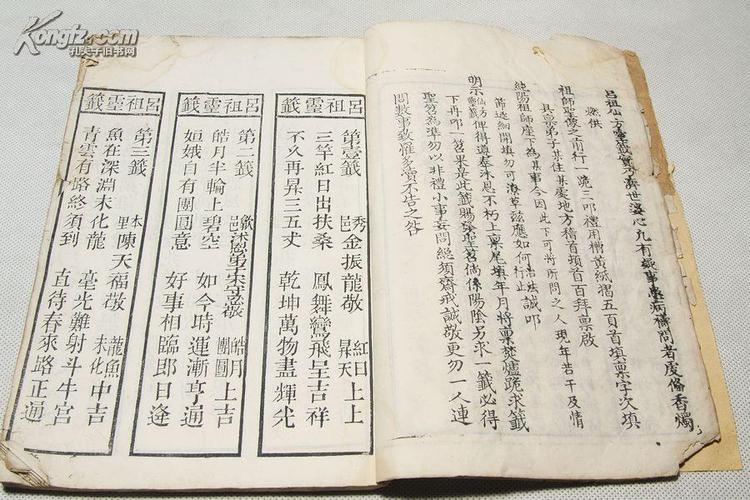 Kongfz.com
孔夫子旧书网
呂祖仙方靈籤實乃濟世婆心凡有疑事學病禱問者虔備香燭
燃供
祖師聖像之前行一跪三叩禮用榜黃紙摺五頁首填票字次填
具票弟子某住某處地方稽首頓首百拜票啟
純陽祖師座下為某事今因此下可將所問之人現年若干及情
節逐細開填勿可潦草茲應如何行止誠叩
明示仙方俾得遵奉沐恩不朽上票尾填年月將票焚爐跪求籤
下再叩一笤果是此籤賜聖笤倘係陽陰另求一籤必得
聖笤為準勿以非禮小事妄問總須齋戒誠敬更勿一人連
問數事敬惟多瀆不告之咎
呂祖靈籤
第壹籤 秀邑金振龍敬 紅日昇天 上上
三竿紅日出扶桑 鳳舞鸞飛呈吉祥
不久再昇三五丈 乾坤萬物盡輝光
呂祖靈籤
第二籤 歙邑 敬 皓月團圓 上吉
皓月半輪上碧空 如今時運漸亨通
姮娥自有團圓意 好事相臨即日逢
呂祖靈籤
第三籤 本里陳天福敬 龍魚未化 中吉
魚在深淵未化龍 毫光難射斗牛宮
青雲有路終須到 直待春來路正通